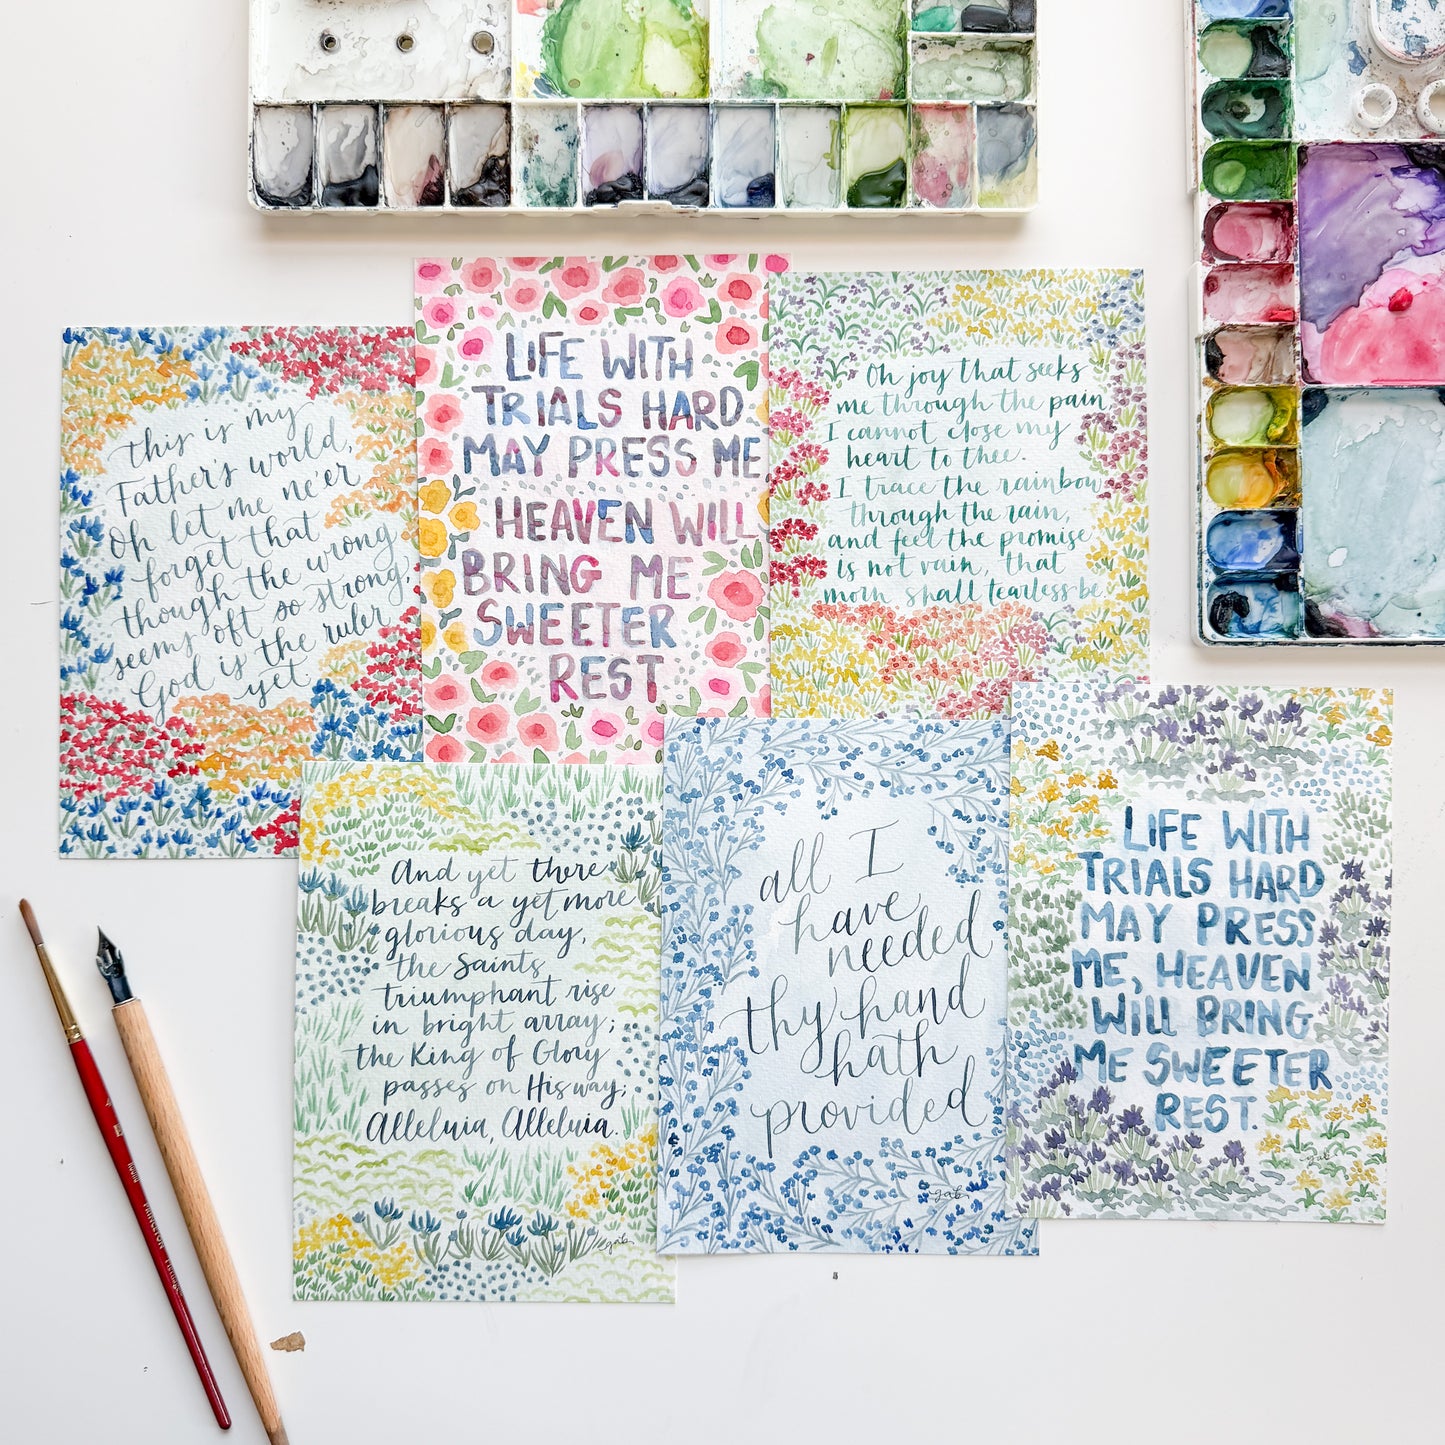 this is my
Father's world,
Oh let me ne'er
forget that
though the wrong
seems oft so strong,
God is the ruler
yet.
LIFE WITH
TRIALS HARD
MAY PRESS ME
HEAVEN WILL
BRING ME
SWEETER
REST
Oh joy that seeks
me through the pain,
I cannot close my
heart to thee.
I trace the rainbow
through the rain,
and feel the promise
is not vain, that
morn shall tearless be.
And yet there
breaks a yet more
glorious day,
the Saints
triumphant rise
in bright array;
the King of Glory
passes on His way;
Alleluia, Alleluia.
gab
all I
have
needed
thy hand
hath
provided
gab
LIFE WITH
TRIALS HARD
MAY PRESS
ME, HEAVEN
WILL BRING
ME SWEETER
REST.
gab